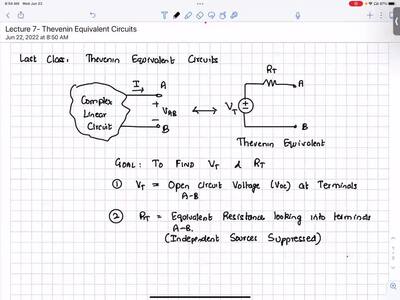 8:54 AM Wed Jun 22
Lecture 7- Thevenin Equivalent Circuits
Jun 22, 2022 at 8:50 AM
Last Class: Thevenin Equivalent Circuits
Complex
Linear
Circuit
I
A
+
VAB
-
B
VT
RT
A
B
Thevenin Equivalent
Goal: To Find VT & RT
① VT = Open Circuit Voltage (Voc) at Terminals
A-B
② RT = Equivalent Resistance looking into terminals
A-B.
(Independent Sources Suppressed)